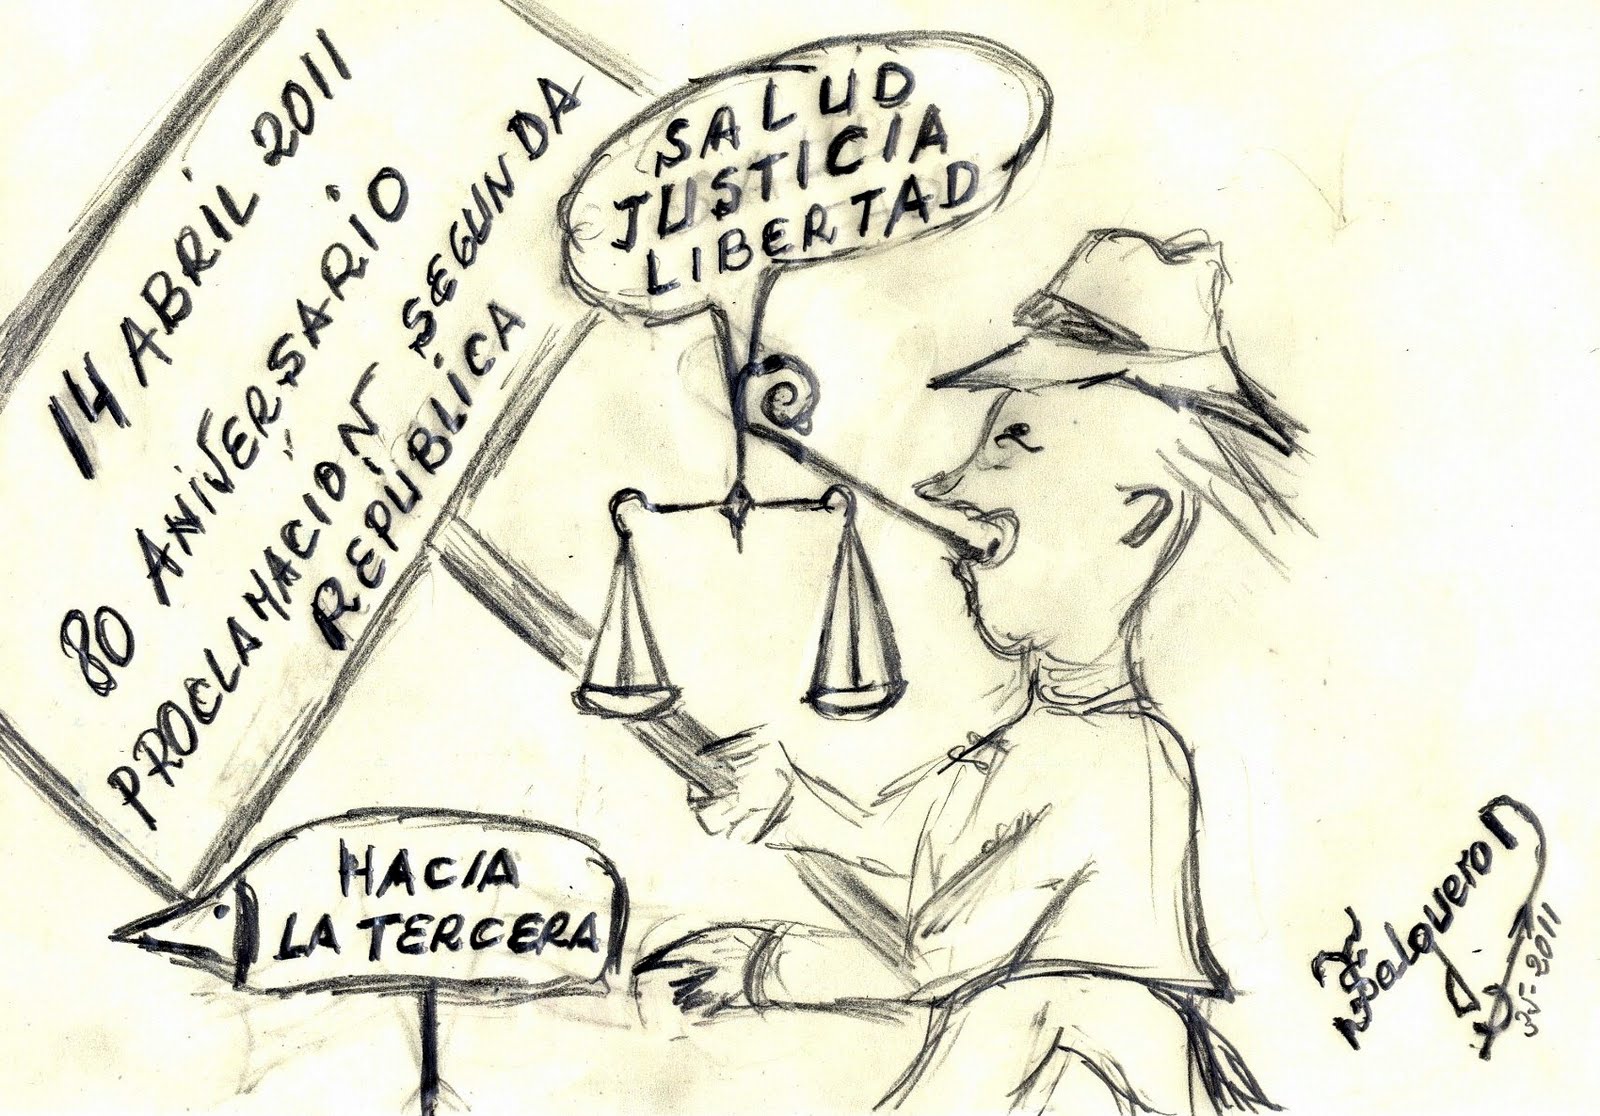 14 ABRIL 2011
80 ANIVERSARIO
PROCLAMACION SEGUNDA
REPUBLICA
SALUD
JUSTICIA
LIBERTAD
HACIA
LA TERCERA
Salguero
2011